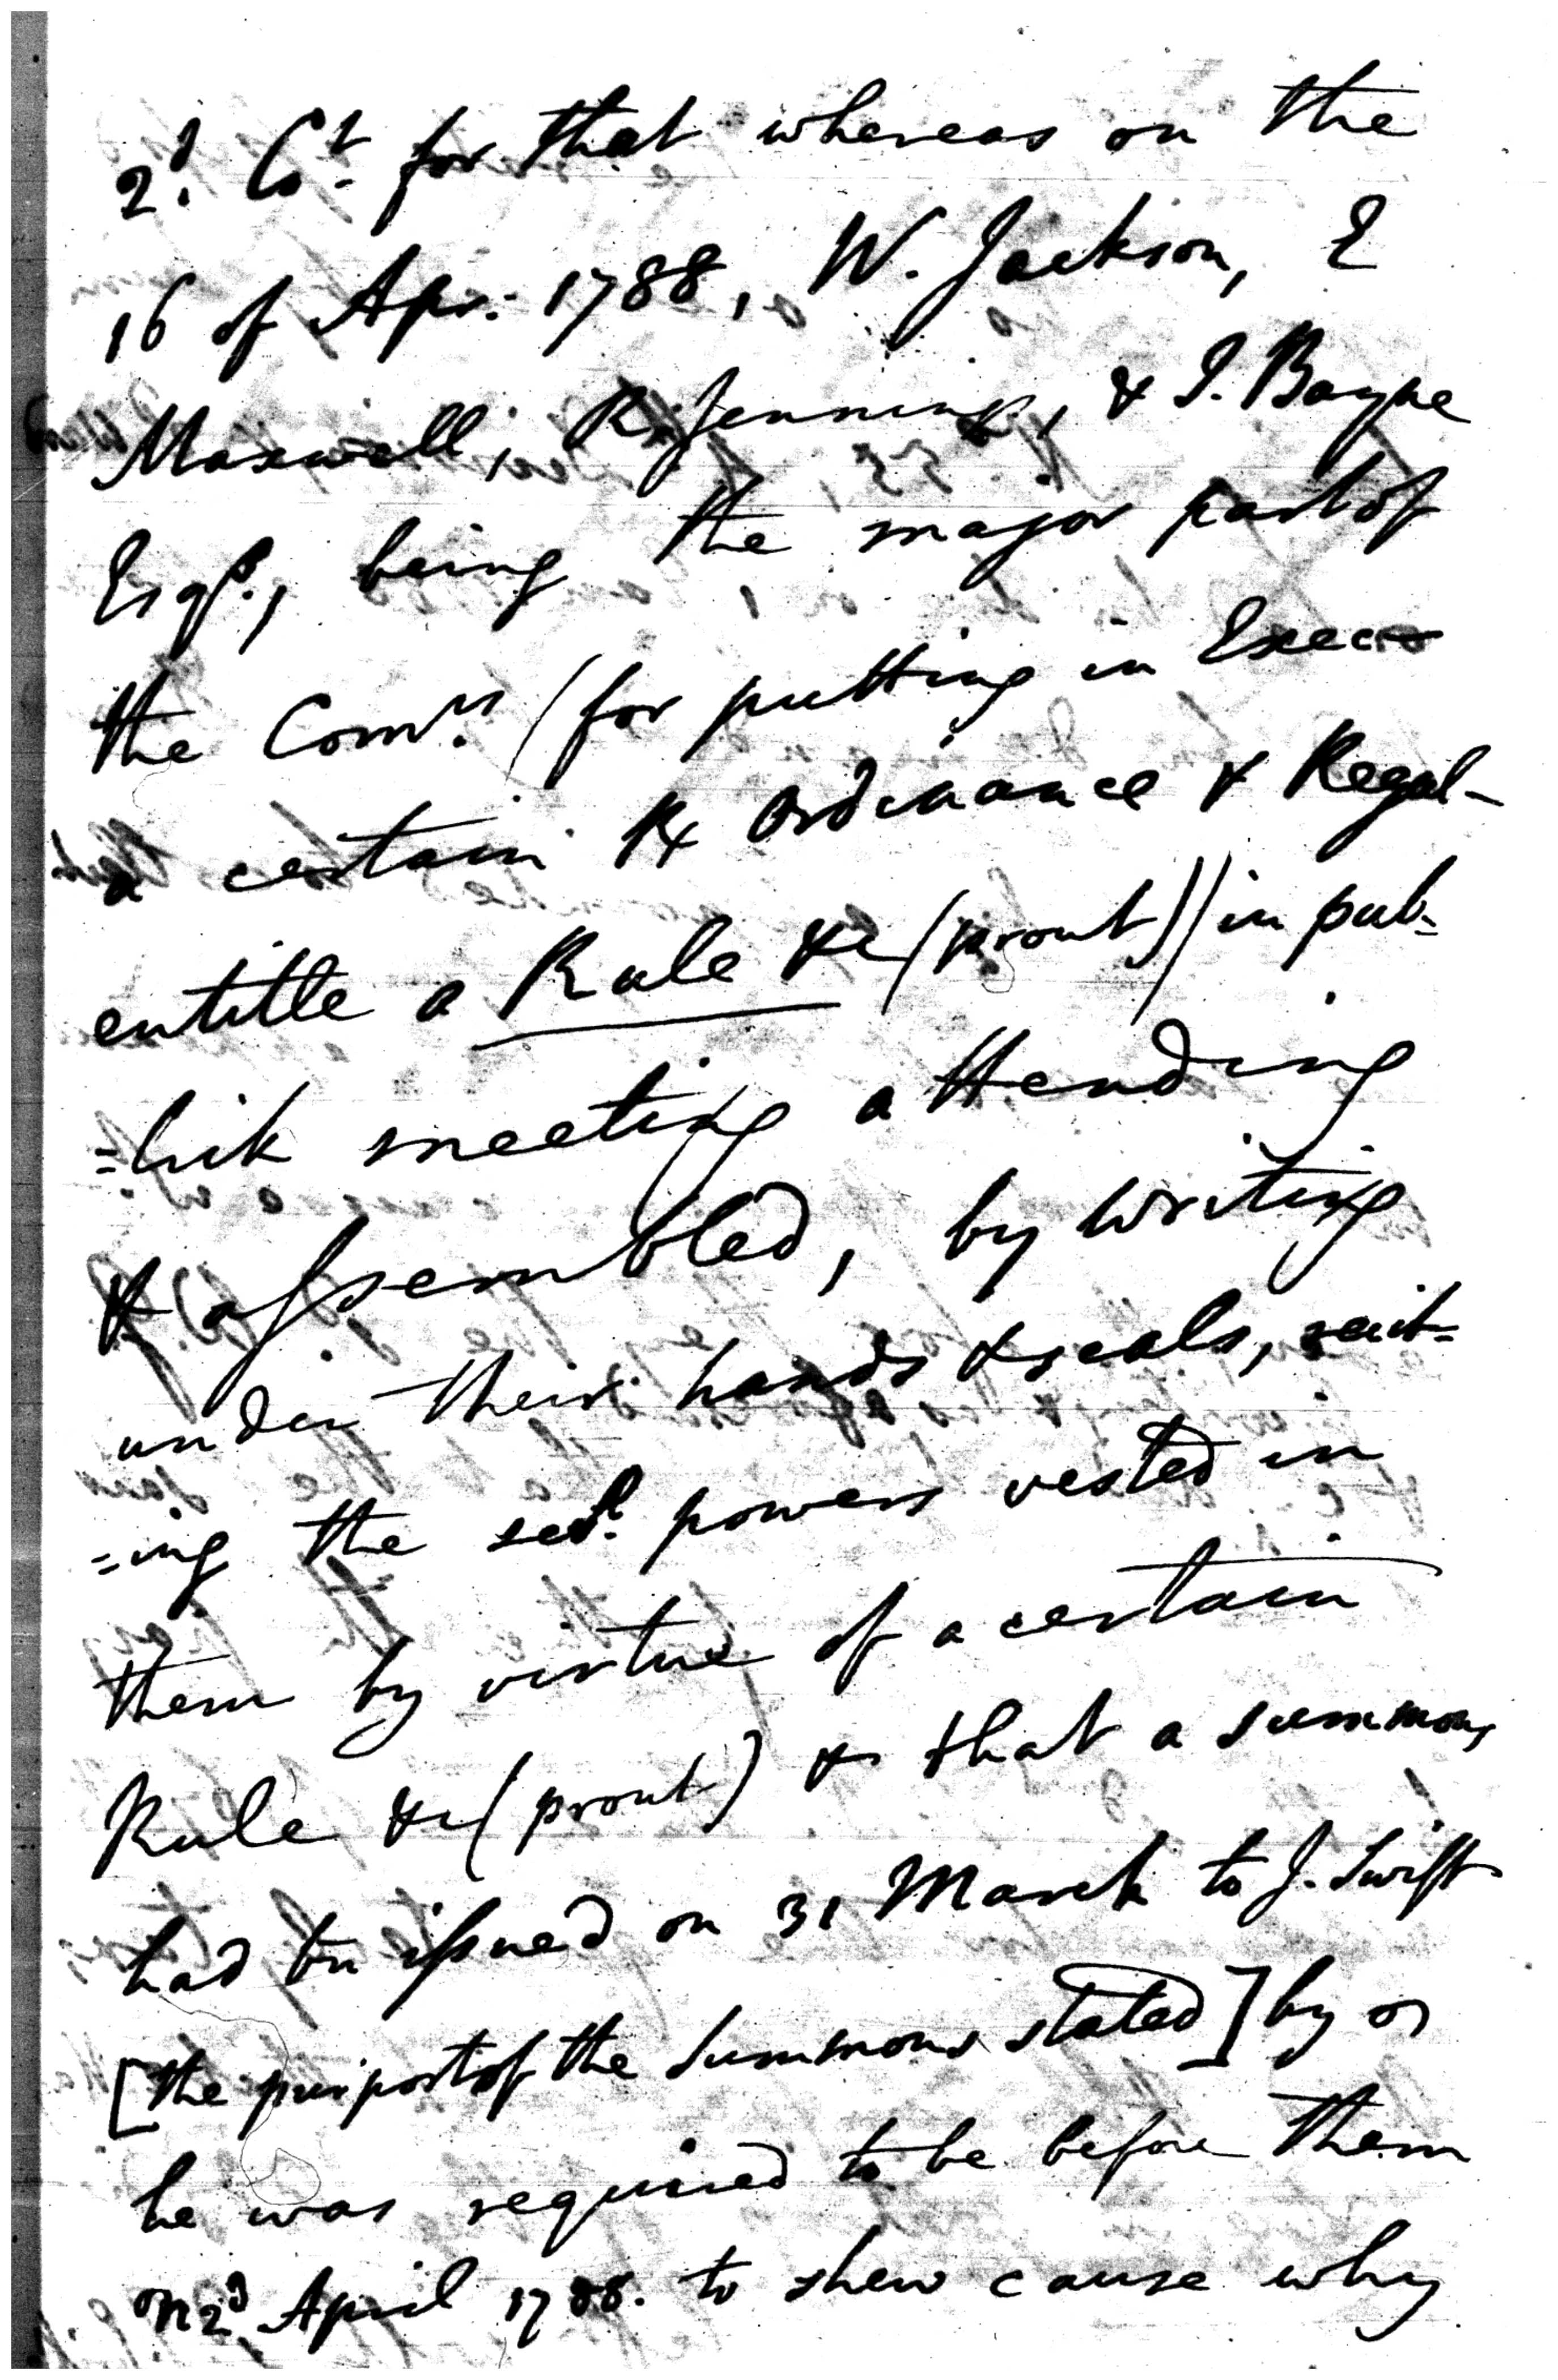 2d. Ct. for that whereas on the
16 of Apr. 1788, W. Jackson, E
Maxwell, R. Jennings, & I. Bayne
Esqs., being the major part of
the Comrs. (for putting in Exec
a certain Ordinance & Regul-
entitle a Rule &c (prout)) in pub=
=lick meeting attending
& assembled, by writing
under their hands & seals, recit=
=ing the sevl. powers vested in
them by virtue of a certain
Rule &c (prout) & that a summons
had bn issued on 31 March to J. Swift
[the purport of the Summons stated] by
he was required to be before them
on 2d April 1788. to shew cause why